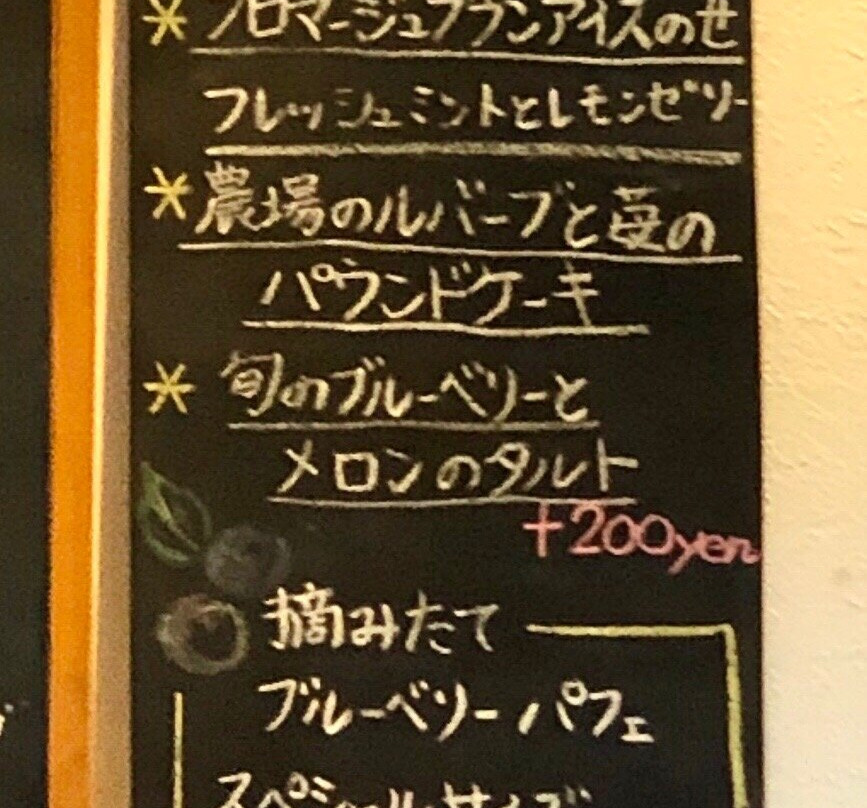 * フロマージュブランアイスの世
フレッシュミントとレモンゼリー
* 農場のルバーブと苺の
パウンドケーキ
* 旬のブルーベリーと
メロンのタルト
+200yen
摘みたて
ブルーベリーパフェ
スペシャルサイズ